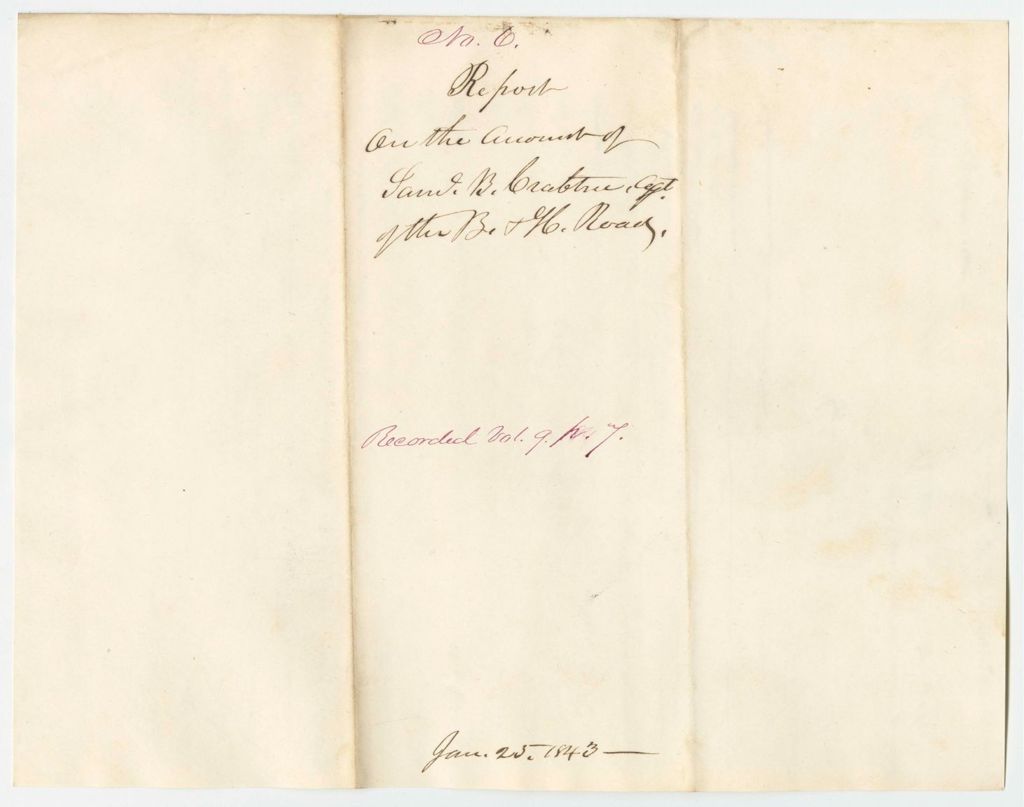 No. 6.
Report
On the account of
Saml. B. Crabtree, Agt.
of the B. & H. Road,
Recorded Vol. 9. p. 7.
Jan. 25. 1843 —